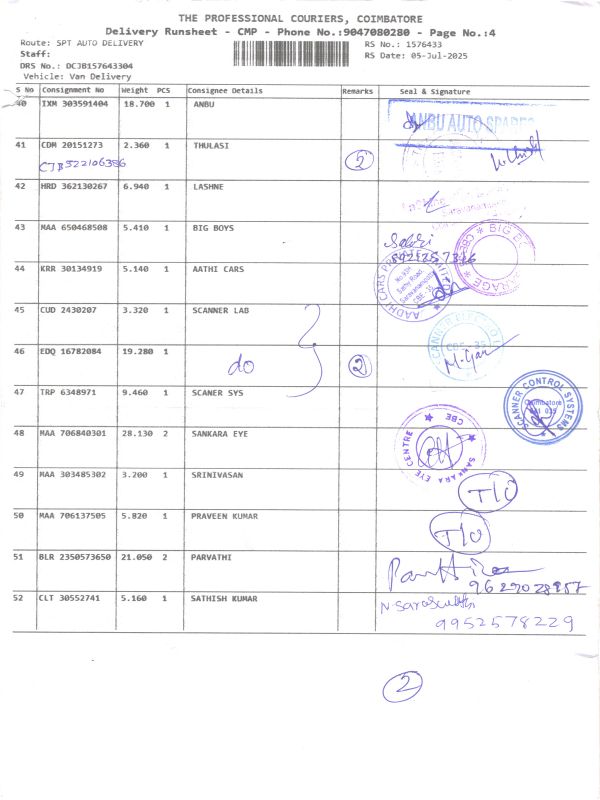 THE PROFESSIONAL COURIERS, COIMBATORE
Delivery Runsheet - CMP - Phone No.:9047080280 - Page No.:4
Route: SPT AUTO DELIVERY RS No.: 1576433
Staff: RS Date: 05-Jul-2025
DRS No.: DCJB157643304
Vehicle: Van Delivery
S No Consignment No Weight PCS Consignee Details Remarks Seal & Signature
40 IXM 303591404 18.700 1 ANBU
ANBU AUTO SPARES
41 CDM 20151273 2.360 1 THULASI
CJB522106386 2
42 HRD 362130267 6.940 1 LASHNE
43 MAA 650468508 5.410 1 BIG BOYS
44 KRR 30134919 5.140 1 AATHI CARS
45 CUD 2430207 3.320 1 SCANNER LAB
46 EDQ 16782084 19.280 1
do 2
47 TRP 6348971 9.460 1 SCANER SYS
SCANNER CONTROL SYSTEMS
48 MAA 706840301 28.130 2 SANKARA EYE
SANKARA EYE CENTRE CBE
49 MAA 303485302 3.200 1 SRINIVASAN
T/O
50 MAA 706137505 5.820 1 PRAVEEN KUMAR
T/O
51 BLR 2350573650 21.050 2 PARVATHI
52 CLT 30552741 5.160 1 SATHISH KUMAR
9952578229
2